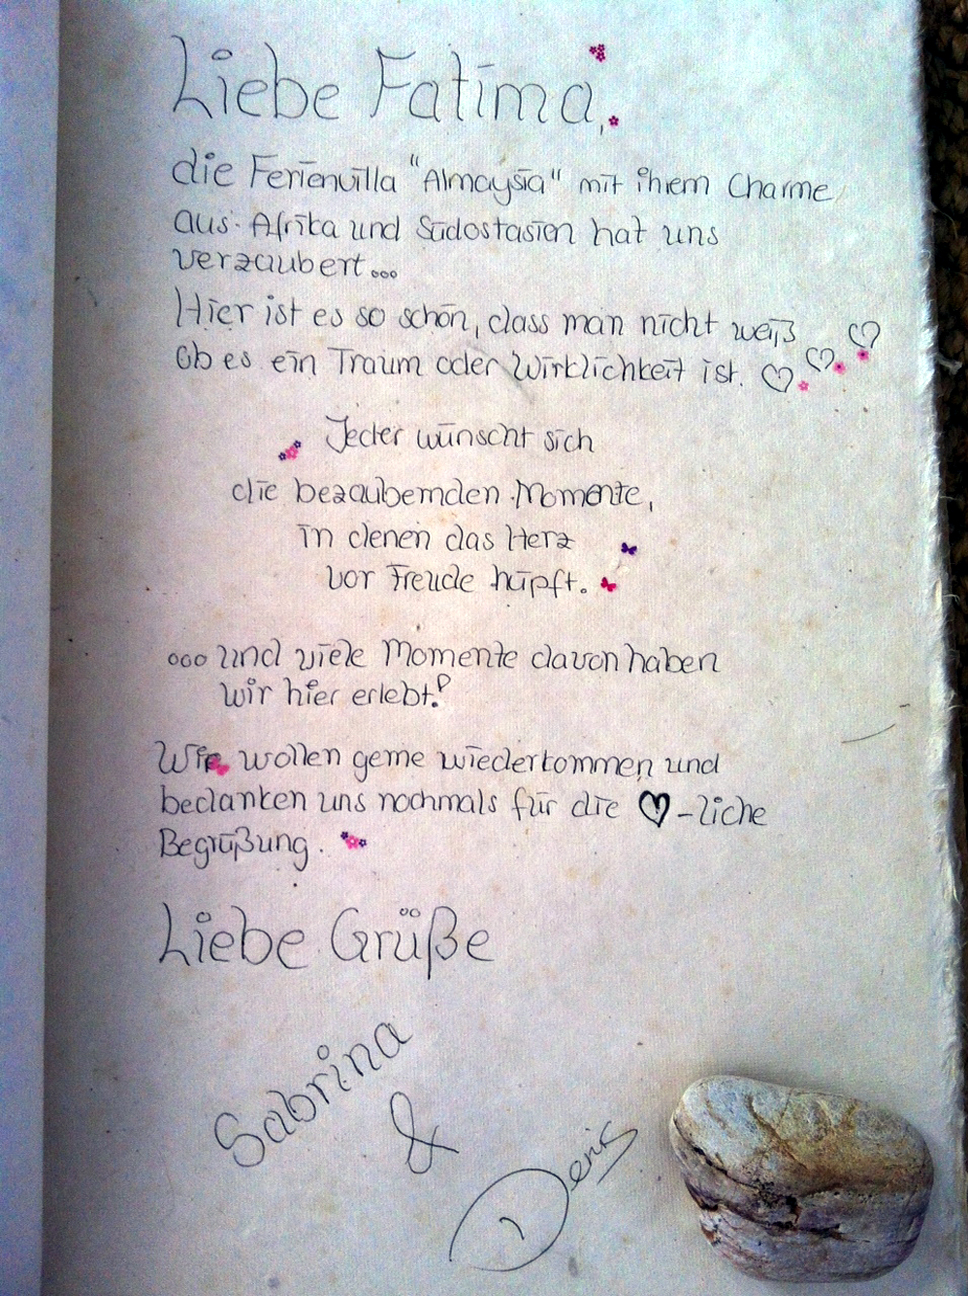 Liebe Fatima,
die Ferienvilla "Almaysia" mit ihrem Charme
aus Afrika und Südostasien hat uns
verzaubert...
Hier ist es so schön, dass man nicht weiß
ob es ein Traum oder Wirklichkeit ist. ♡ ♡ ♡
Jeder wünscht sich
die bezaubernden Momente,
in denen das Herz
vor Freude hüpft.
... und viele Momente davon haben
wir hier erlebt!
Wir wollen gerne wiederkommen und
bedanken uns nochmals für die ♡-liche
Begrüßung.
Liebe Grüße
Sabrina
&
Denis